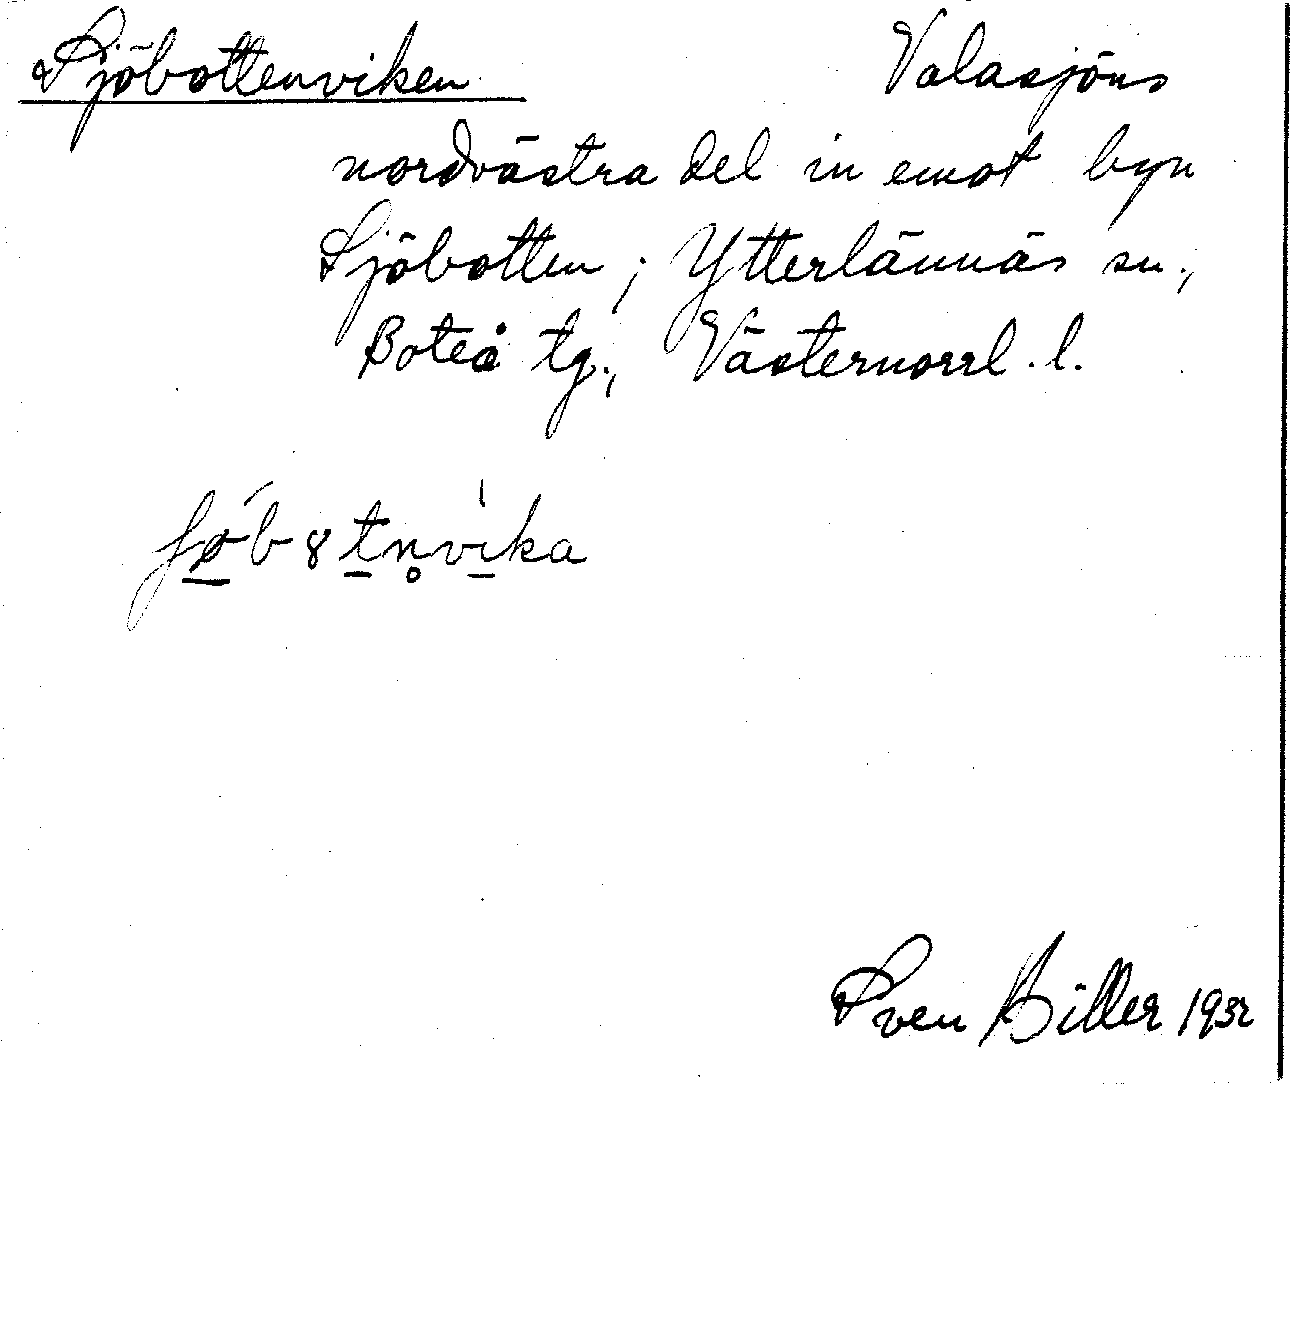 Sjöbottenviken Valasjöns
nordvästra del in emot byn
Sjöbotten; Ytterlännäs sn.,
Boteå tg., Västernorrl. l.
ʃǿ̱b8ṯn̥vi̱̍ka
Sven Biller 1932